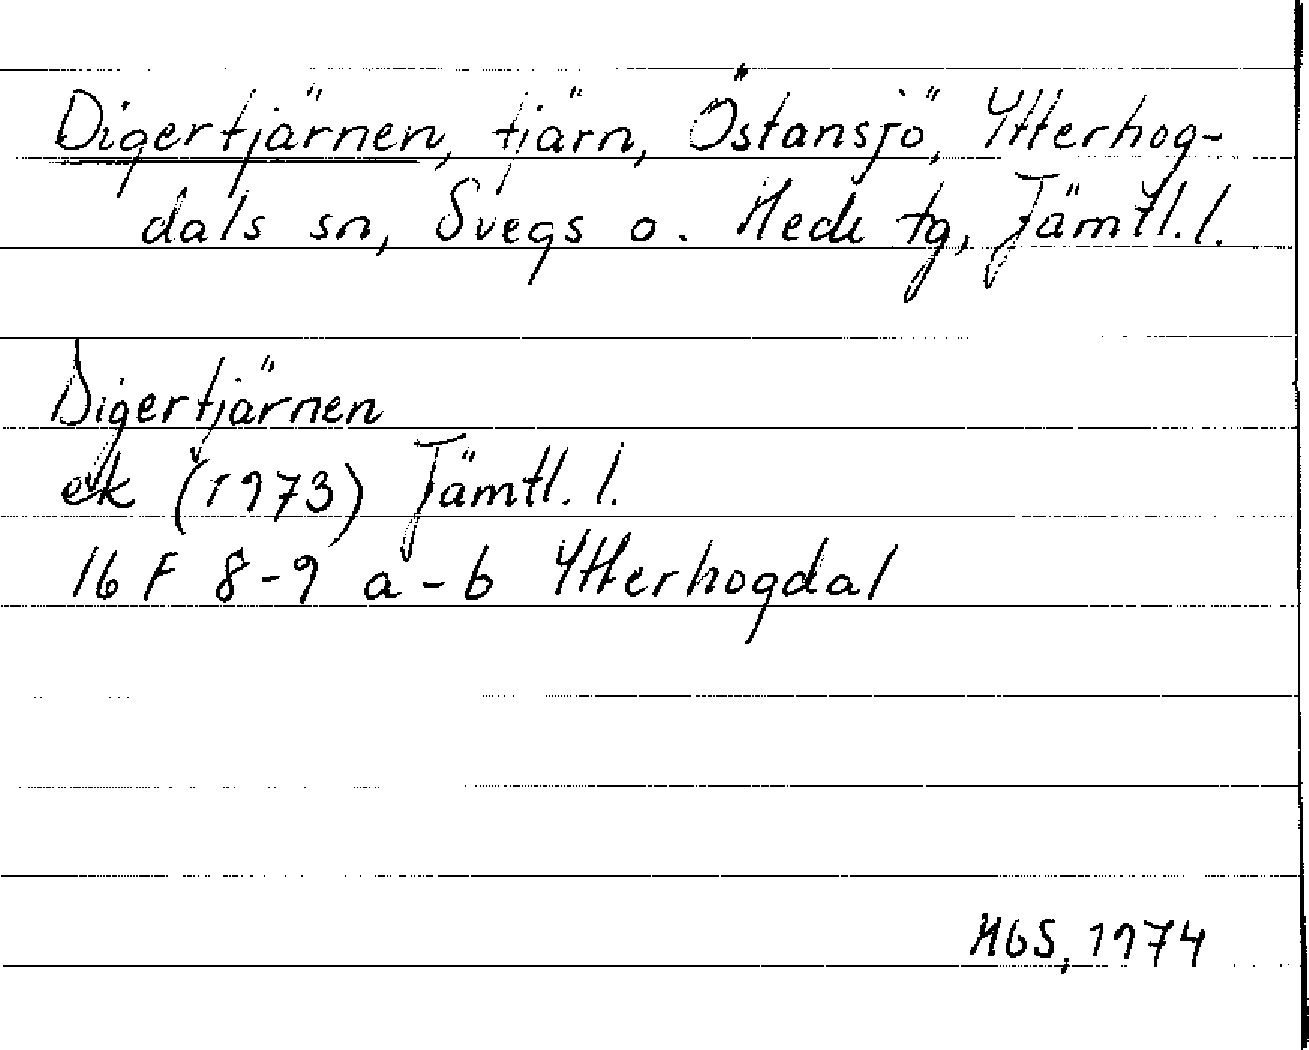 Digertjärnen, tjärn, Östansjö, Ytterhog-
dals sn, Svegs o. Hede tg, Jämtl. l.
Digertjärnen
ek (1973) Jämtl. l.
16 F 8-9 a-b Ytterhogdal
HGS, 1974